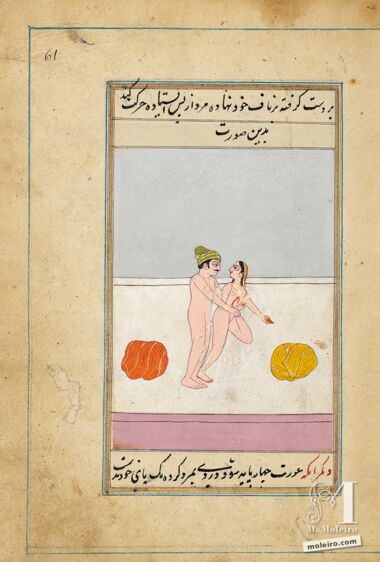 61
بر دست گرفته بر ناف خود نهاده مرد از پس ایستاده حرکت کند
بدین صورت
دیگر آنکه عورت چهار پایه شود و روی
خود
M
M. Moleiro
moleiro.com